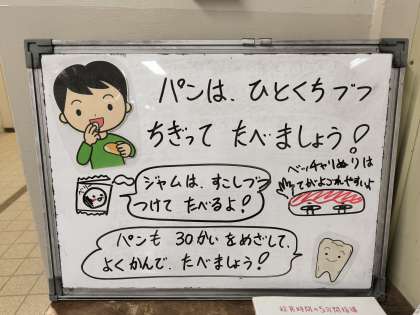 パンは、ひとくちづつ
ちぎって たべましょう!
ジャムは、すこしづつ
つけて たべるよ!
ベッチャリぬりは
てがよごれやすいよ
パンも 30かいをめざして、
よくかんで、たべましょう!